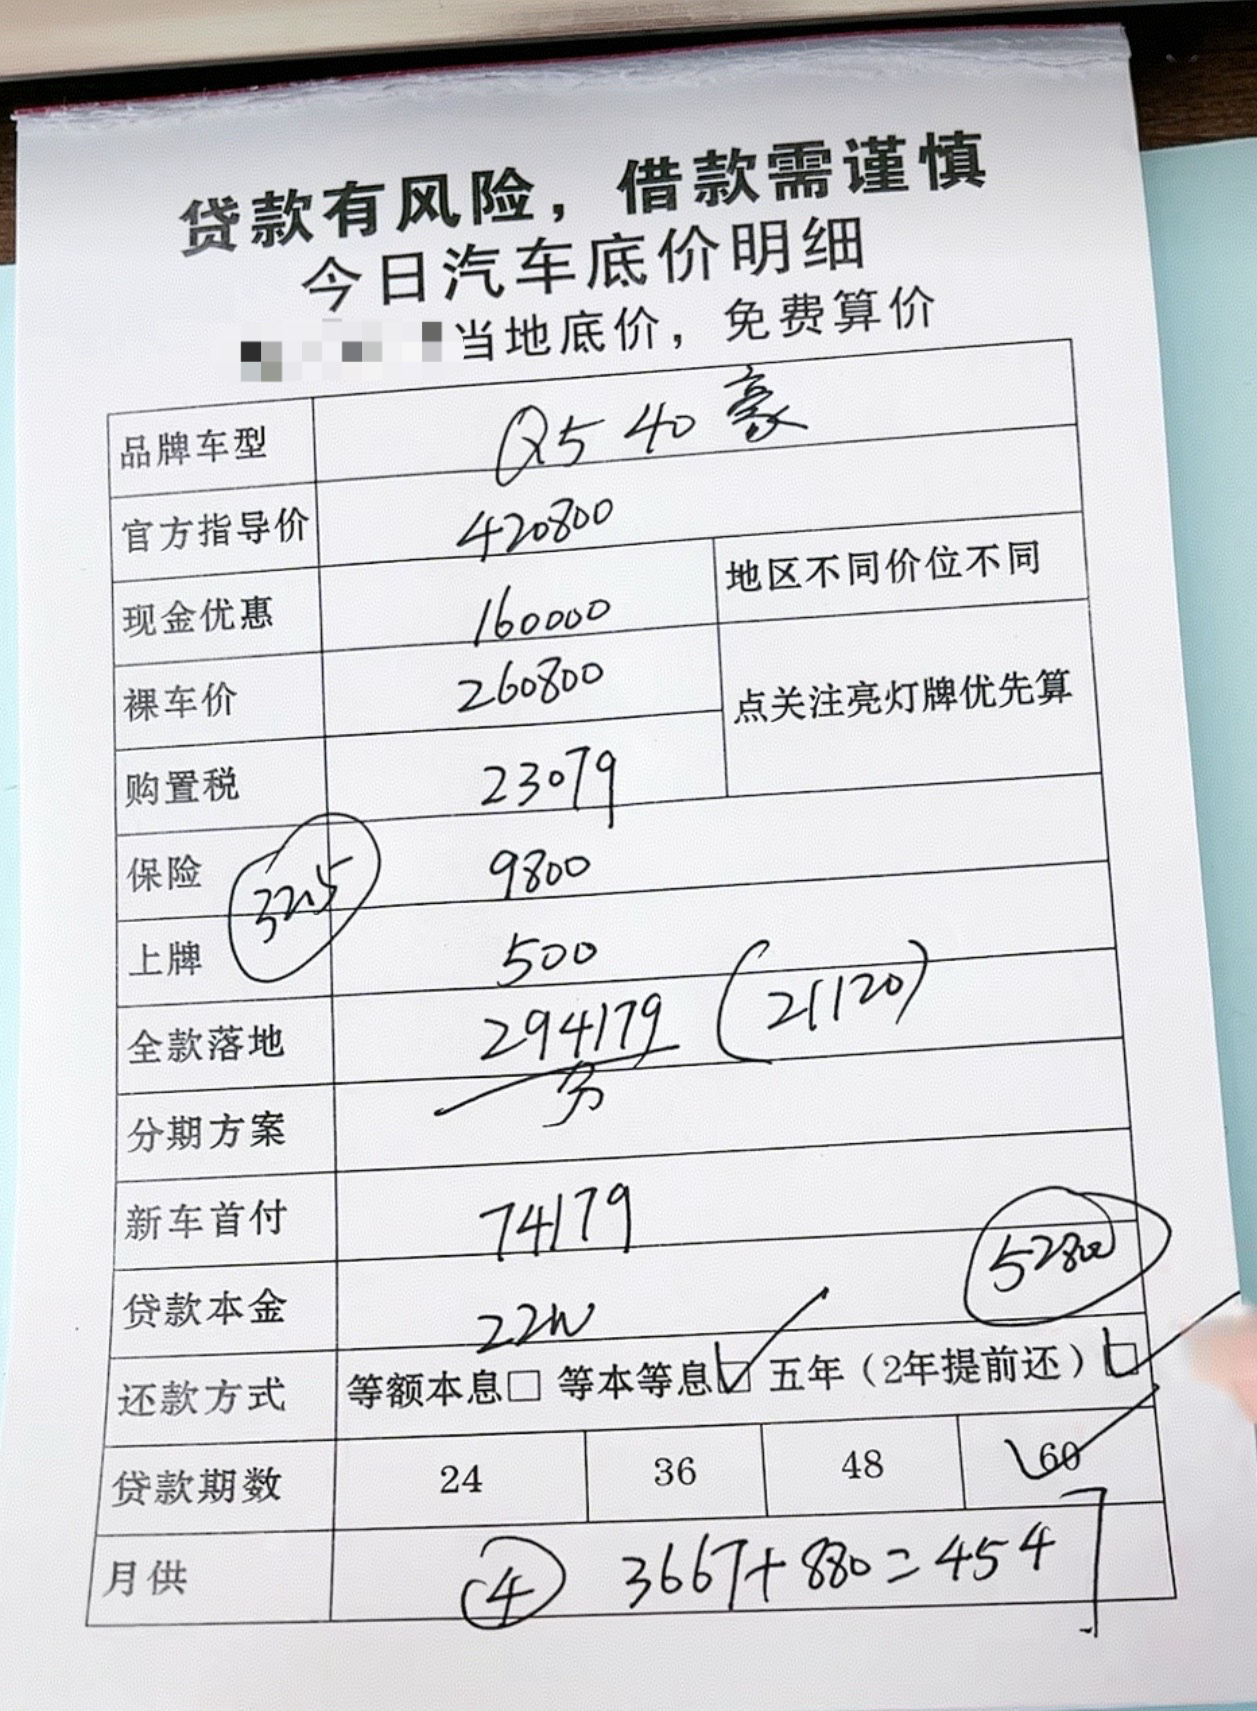 贷款有风险，借款需谨慎
今日汽车底价明细
当地底价，免费算价
品牌车型 Q5 40 豪
官方指导价 420800
现金优惠 160000 地区不同价位不同
裸车价 260800 点关注亮灯牌优先算
购置税 23079
保险 9800
3215
上牌 500
全款落地 294179 (21120)
分期方案
新车首付 74179
52800
贷款本金 22W
还款方式 等额本息□ 等本等息☑ 五年（2年提前还）☑
贷款期数 24 36 48 60
月供 ④ 3667+880=4547